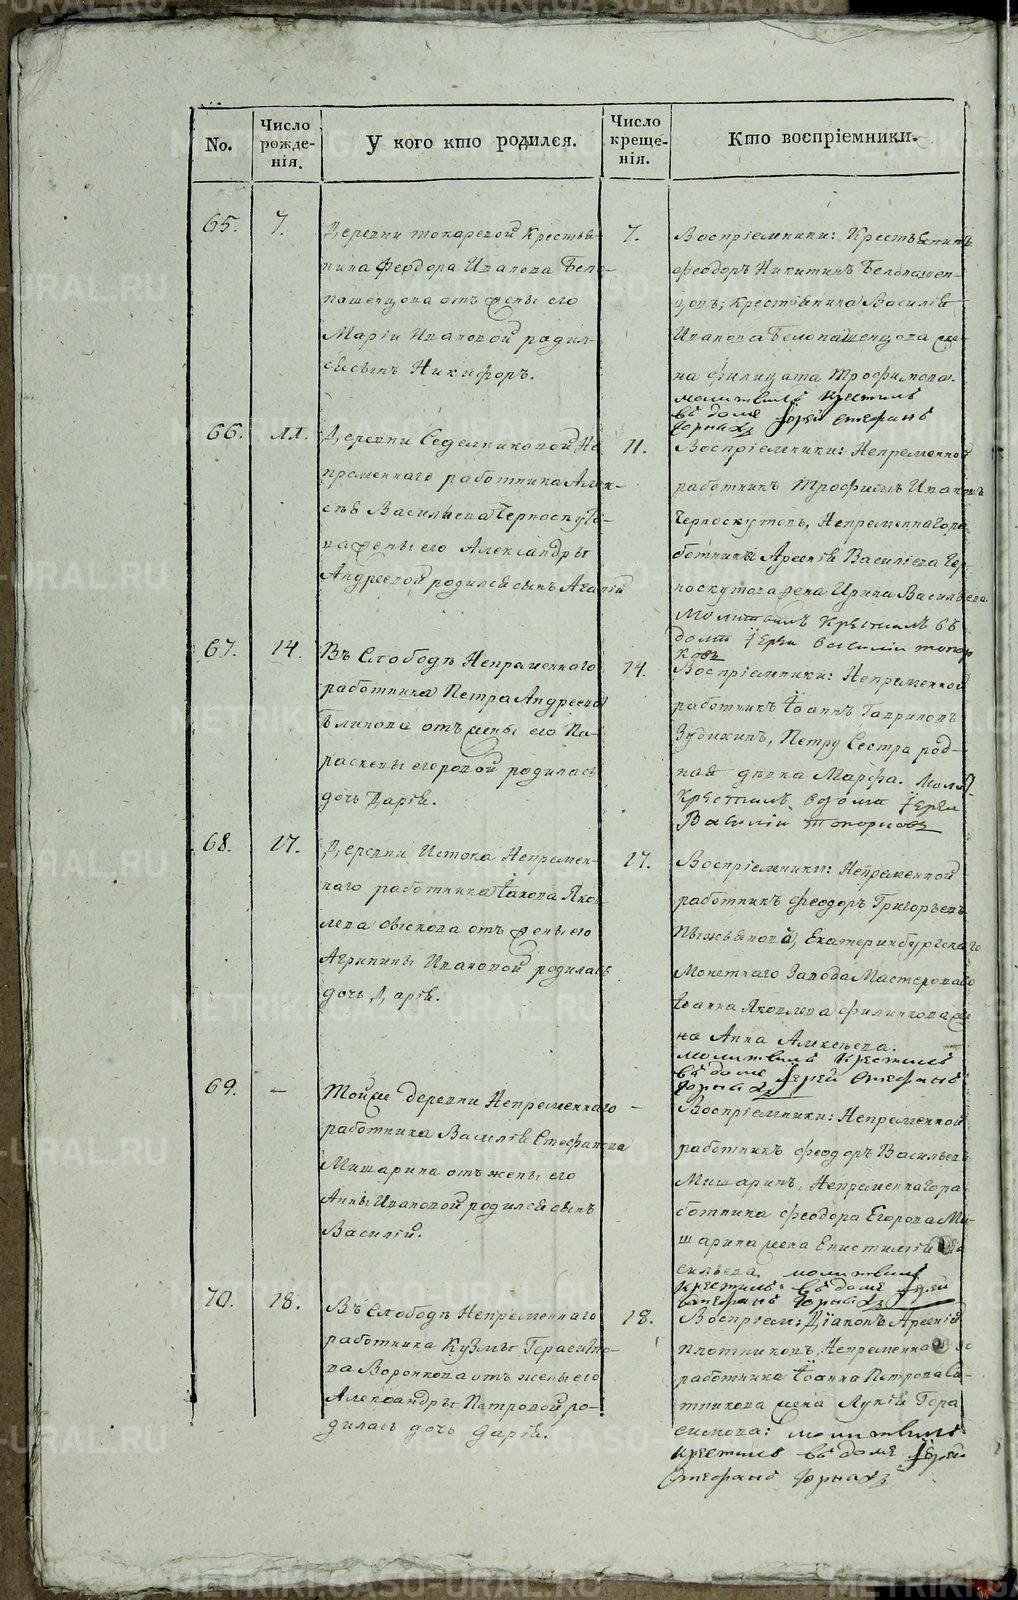 No.
Число рожде-
нія.
У кого кто родился.
Число креще-
нія.
Кто воспріемники.
65.
7.
Деревни токаревой Крестья-
нина Феодора Иванова Бело-
пашенцова отъ жены его
Маріи Ивановой родил-
ся сынъ Никифоръ.
7.
Воспріемники: Крестьянинъ
Феодоръ Никитинъ Белопашен-
цовъ; крестьянина Василія
Иванова Белопашенцова же-
на Филицата Трофимова.
молитвилъ крестилъ
въ доме Іерей Стефанъ
66.
11.
Деревни Седельниковой Не-
пременнаго работника Алек-
сѣя Васильева Черноскуто-
ва жены его Александры
Андреевой родился сынъ
11.
Воспріемники: Непременной
работникъ Трофимъ Ивановъ
Черноскутовъ, Непременнаго ра-
ботника Арсенія Василіева Чер-
носкутова жена Ирина Васильева.
Молитвилъ Крестилъ въ
доми Іерей Василій топор
ковъ
67.
14.
Въ Слободѣ Непременнаго
работника Петра Андреева
Блинова отъ жены его Па-
раскевы егоровой родилась
дочь Дарія.
14.
Воспріемники: Непременной
работникъ Іоаннъ Гавриловъ
Зудихинъ, Петру Сестра род-
ная дѣвка Марфа. Молит
Крестилъ вдоми Іерей
Василій топорковъ
68.
17.
Деревни Истока Непремен-
наго работника Іакова Яков-
лева отъ жены его
Агрипины Ивановой родилась
дочь Дарія.
17.
Воспріемники: Непременной
работникъ Феодоръ Григорьевъ
Пыжьяновъ, Екатеринбургскаго
Монетнаго Завода Мастероваго
Іоанна Яковлева Филинкова же
на Анна Алексѣева.
молитвилъ Крестилъ
въ доме Іерей Стефанъ
69.
—
Тойже деревни Непременнаго
работника Василія Стефанова
Мишарина отъ жены его
Анны Ивановой родился сынъ
Василій.
—
Воспріемники: Непременной
работникъ Феодоръ Васильевъ
Мишаринъ, Непременнаго ра-
ботника Феодора Егорова Ми-
шарина жена Епистимія Ва
сильева. молитвилъ
крестилъ въ доме Іерей
Стефанъ
70.
18.
Въ Слободѣ Непременнаго
работника Кузмы Герасимо-
ва Воронкова отъ жены его
Александры Петровой ро-
дилась дочь Дарія.
18.
Воспріем: Діаконъ Арсеній
плотниковъ, Непременнаго
работника Іоанна Петрова Са-
тникова жена Лукія Гера
симова: молитвилъ
крестилъ въ доме Іерей
Стефанъ
METRIKI.GASO-URAL.RU